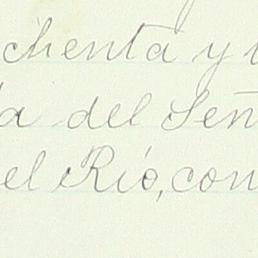 chenta y
a del Señ
el Río, con